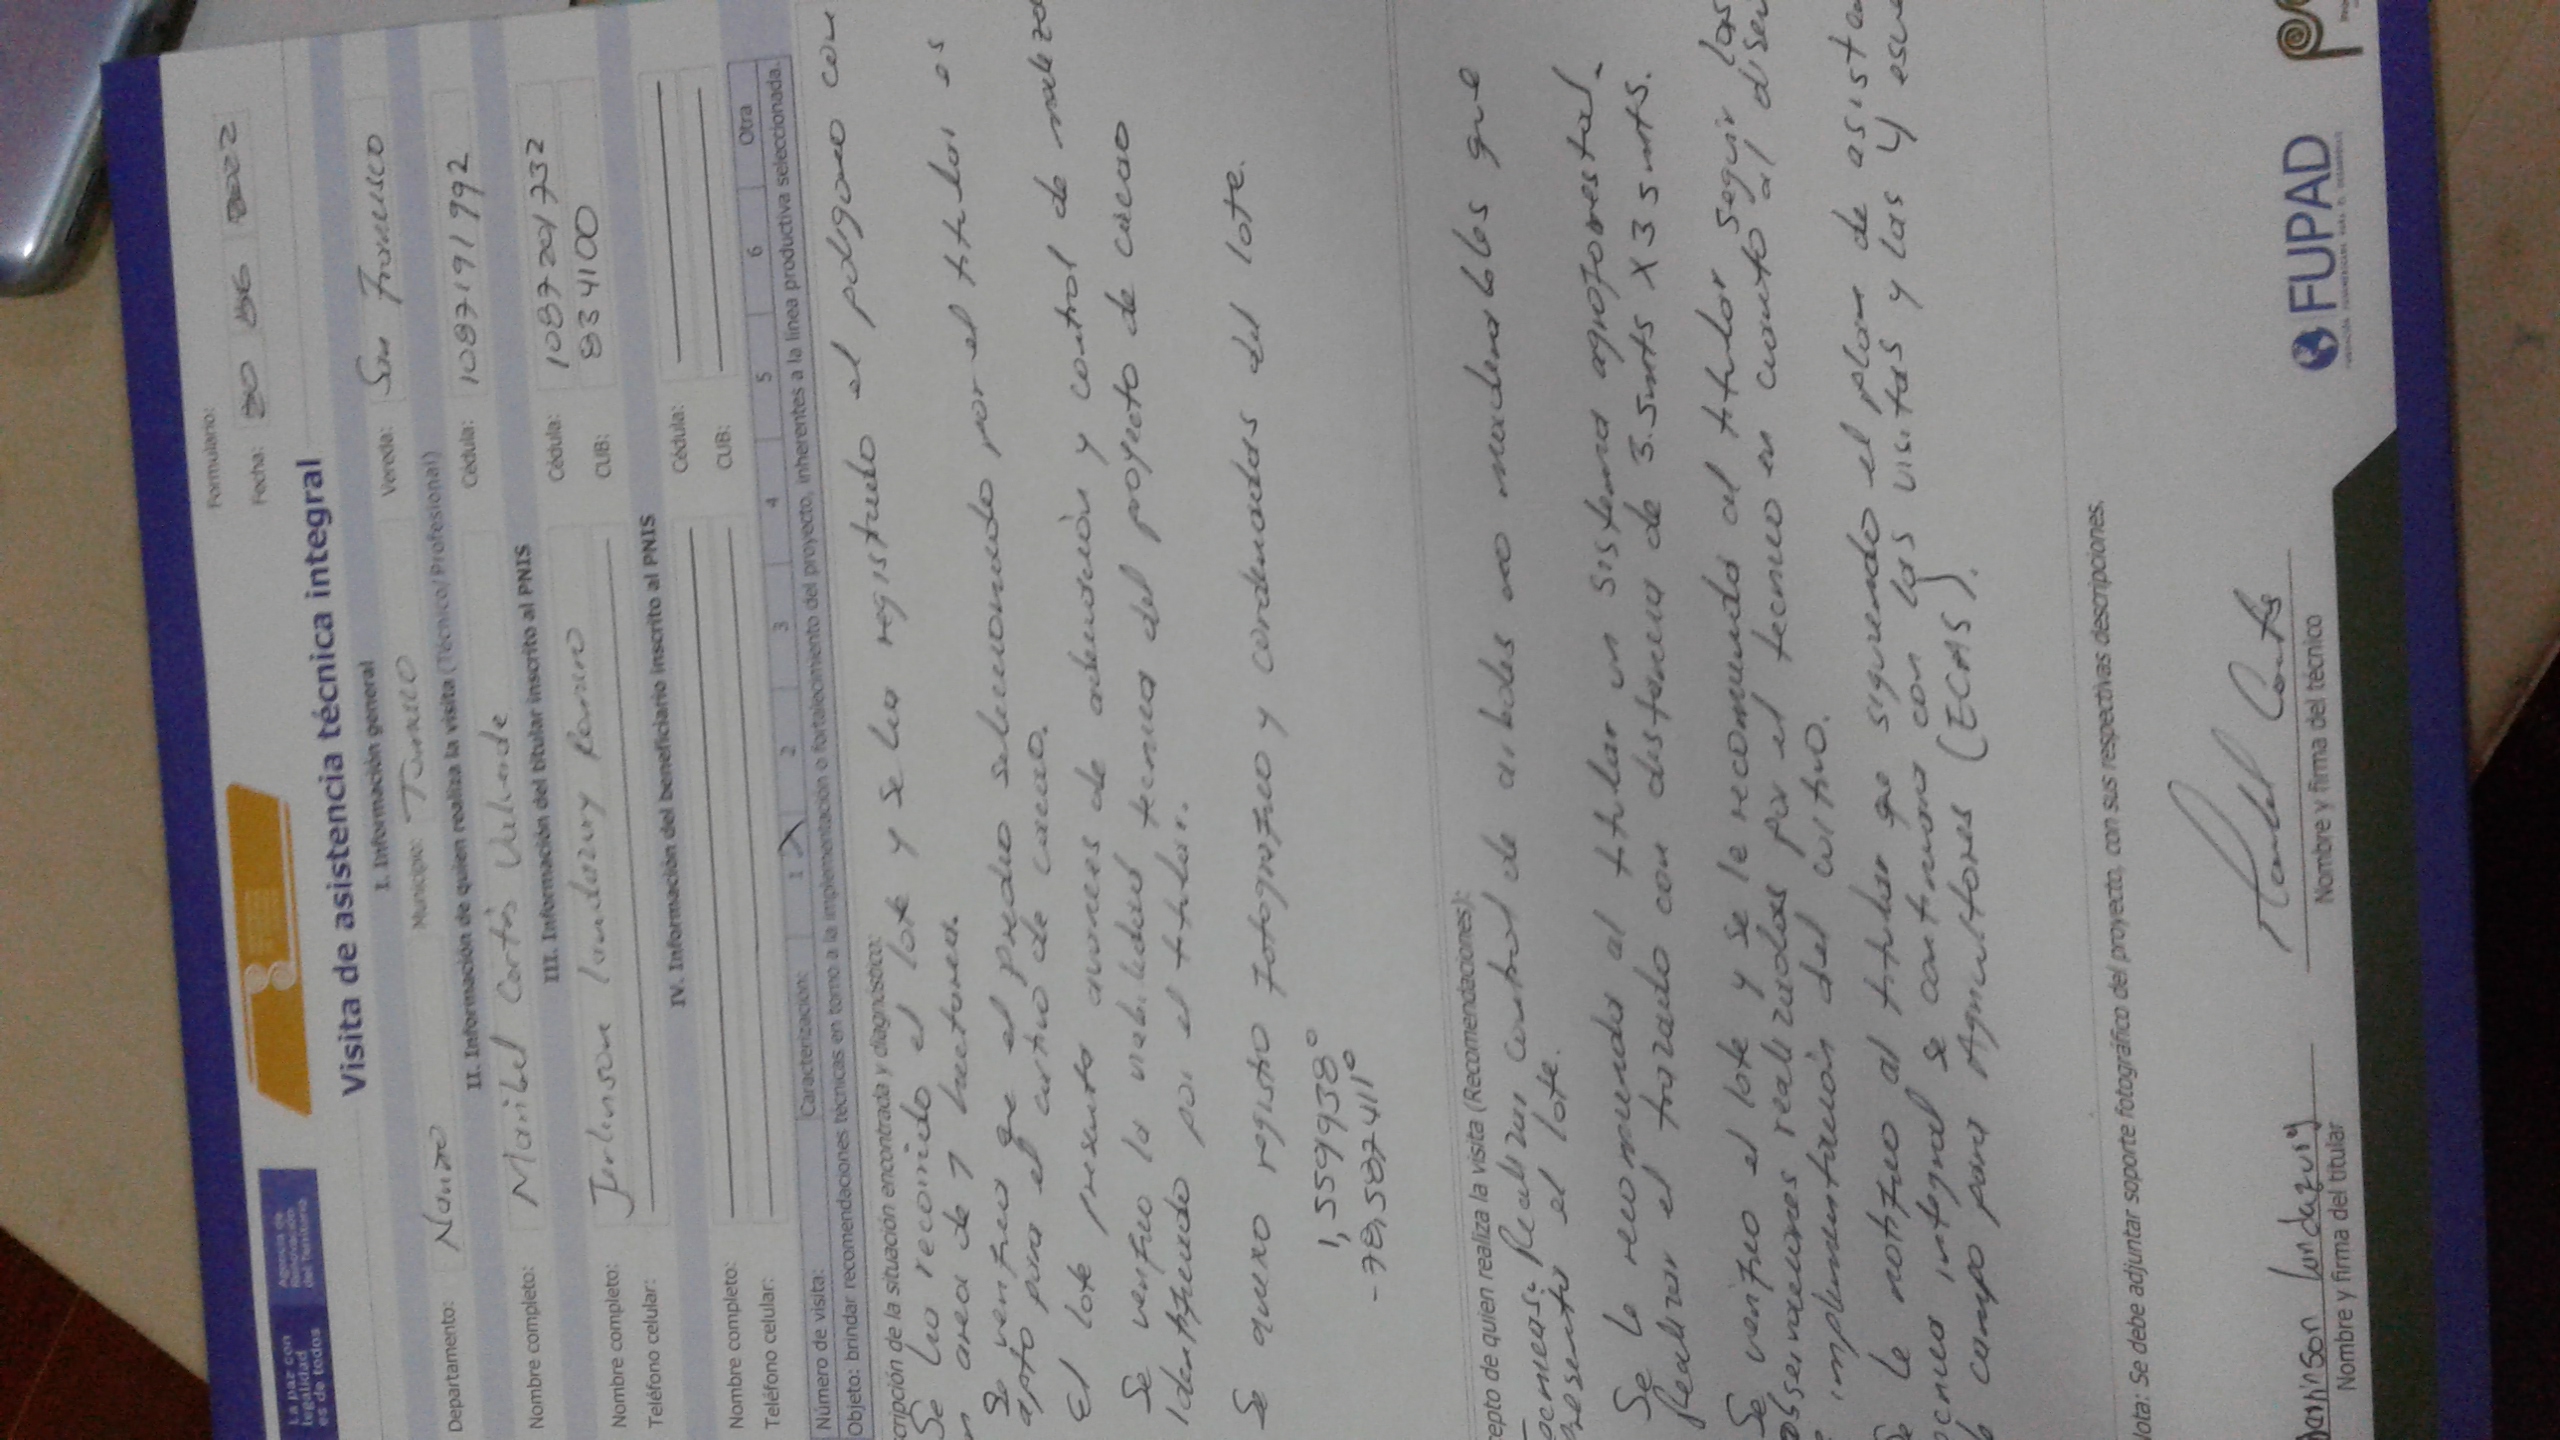 La paz con
legalidad
es de todos
Agencia de
Renovación
del Territorio
Formulario:
Fecha: 20 2022
Visita de asistencia técnica integral
I. Información general
Departamento: Nariño Municipio: Tumaco Vereda: San Francisco
II. Información de quien realiza la visita (Técnico/Profesional)
Nombre completo: Maribel Cortés Valverde Cédula: 1087191992
III. Información del titular inscrito al PNIS
Nombre completo: landazury Cédula: 1087201732
Teléfono celular: CUB: 8341100
IV. Información del beneficiario inscrito al PNIS
Nombre completo: Cédula:
Teléfono celular: CUB:
Número de visita: Caracterización: 1 X 2 3 4 5 6 Otra
Objeto: brindar recomendaciones técnicas en torno a la implementación o fortalecimiento del proyecto, inherentes a la línea productiva seleccionada.
cripción de la situación encontrada y diagnóstico:
Se ha recorrido el lote y se ha registrado el poligono con
n area de 1 hectarea.
Se verifico que el predio seleccionado por el titular es
apto para el cultivo de cacao.
El lote presenta avances de adecuación y control de maleza
Se verifico la viabilidad tecnica del proyecto de cacao
identificado por el titular.
Se anexo registro fotografico y cordenadas del lote.
1,5599938°
-78,5872411°
epto de quien realiza la visita (Recomendaciones):
Realizar control de arboles no maderables que
presenta el lote.
Se le recomienda al titular un sistema agroforestal.
Realizar el trazado con distancia de 3.5mts X 3.5mts.
Se verifico el lote y se le recomienda al titular seguir las
observaciones realizadas por el tecnico en cuanto al diseñ
implementación del cultivo.
Se le notifico al titular que siguiendo el plan de asisten
cnica integral se continuara con las visitas y las 4 escue
campo para Agricultores (ECAS).
Nota: Se debe adjuntar soporte fotográfico del proyecto, con sus respectivas descripciones.
landazury
Maribel Cortés
Nombre y firma del titular
Nombre y firma del técnico
FUPAD